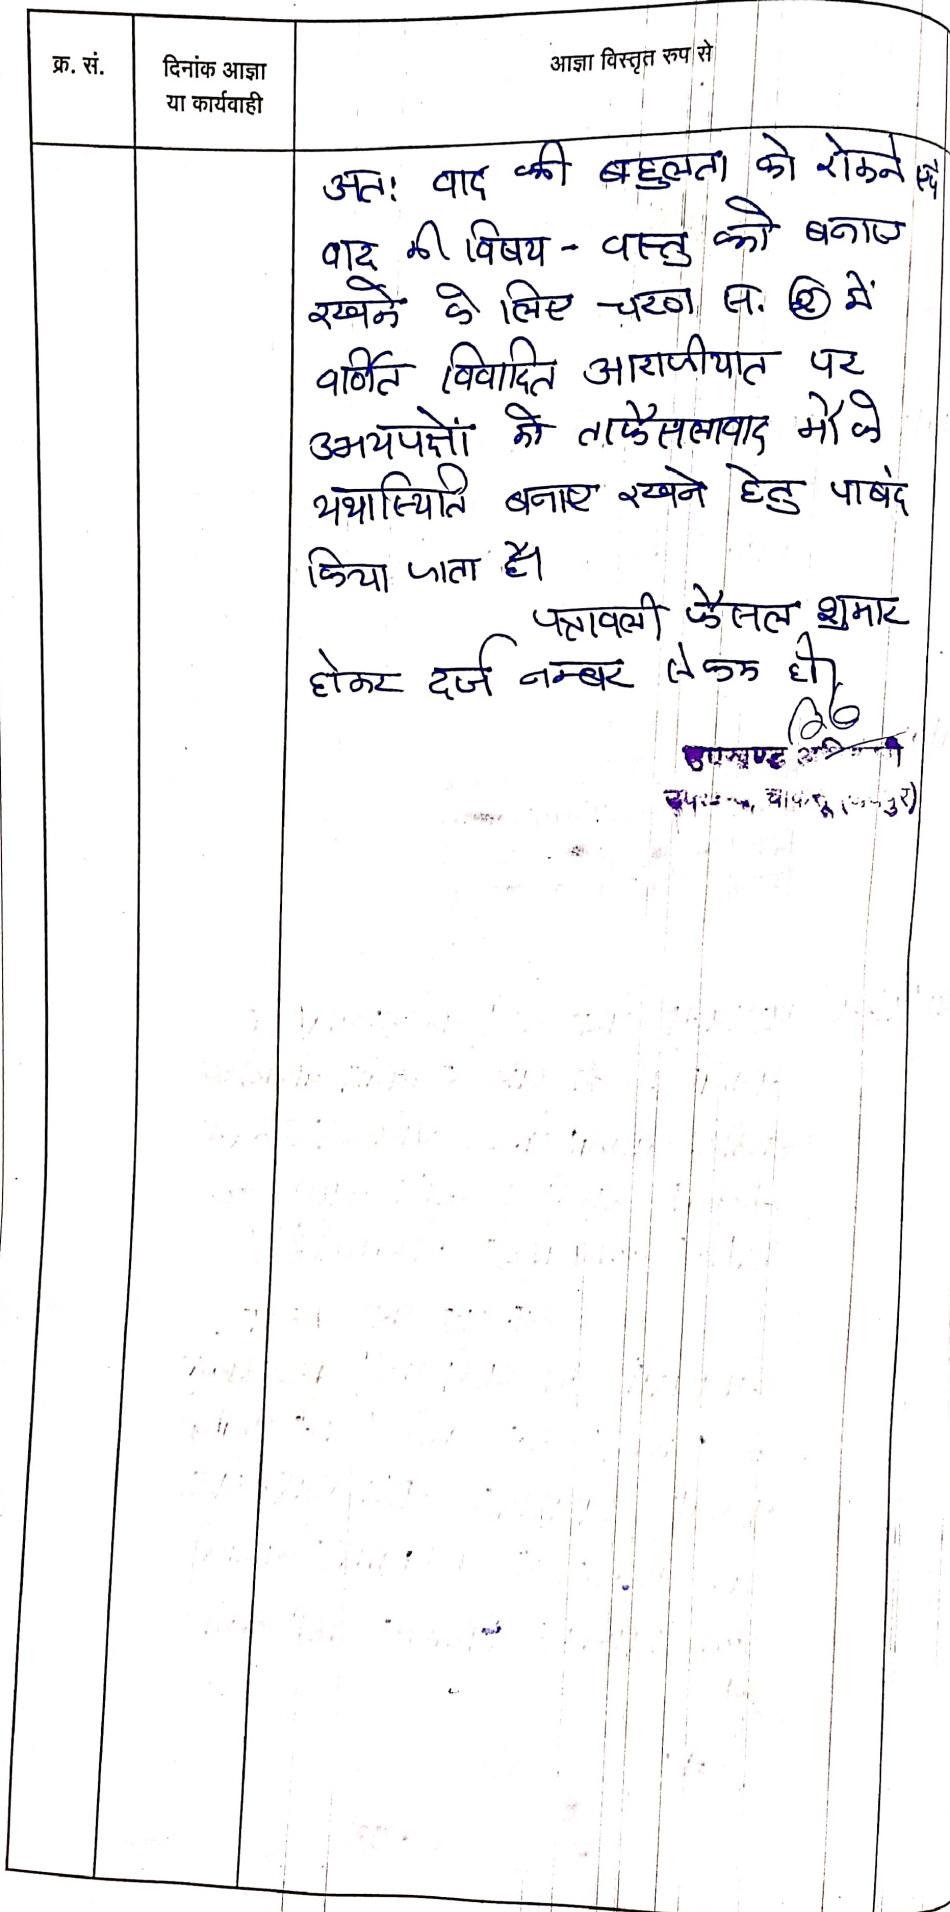 क्र. सं.
दिनांक आज्ञा
या कार्यवाही
आज्ञा विस्तृत रुप से
अतः वाद की बहुलता को रोकने एवं
वाद की विषय - वस्तु को बनाए
रखने के लिए चरण सं. ② में
वर्णित विवादित आराजीयात पर
उभयपक्षों को ताफैसलावाद मौके
यथास्थिति बनाए रखने हेतु पाबंद
किया जाता है।
पत्रावली फैसल शुमार
होकर दर्ज नम्बर से कम हो।
उपखण्ड अधिकारी
चाकसू (जयपुर)